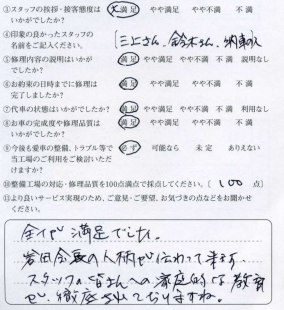 ③スタッフの挨拶・接客態度は 大満足 やや満足 やや不満 不満
いかがでしたか?
④印象の良かったスタッフの
名前をご記入ください。 三上さん、鈴木さん、納車の人
⑤修理内容の説明はいかが 満足 やや満足 やや不満 不満 説明なし
でしたか?
⑥お約束の日時までに修理は 満足 やや満足 やや不満 不満
完了しましたか?
⑦代車の状態はいかがでしたか 満足 やや満足 やや不満 不満 利用なし
⑧お車の完成度や修理品質は 満足 やや満足 やや不満 不満
いかがでしたか?
⑨今後も愛車の整備、トラブル等で 必ず 可能なら 未定 ありえない
当工場のご利用をご検討いただ
けますか?
⑩整備工場の対応・修理品質を100点満点で採点してください。〔 100 点〕
⑪より良いサービス実現のため、ご意見・ご要望、お気づきの点などをお聞かせ
ください。
全てが満足でした。
岩田会長の人柄が伝わって来ます。
スタッフの皆さんへの家庭的な教育
が、徹底されておりますね。